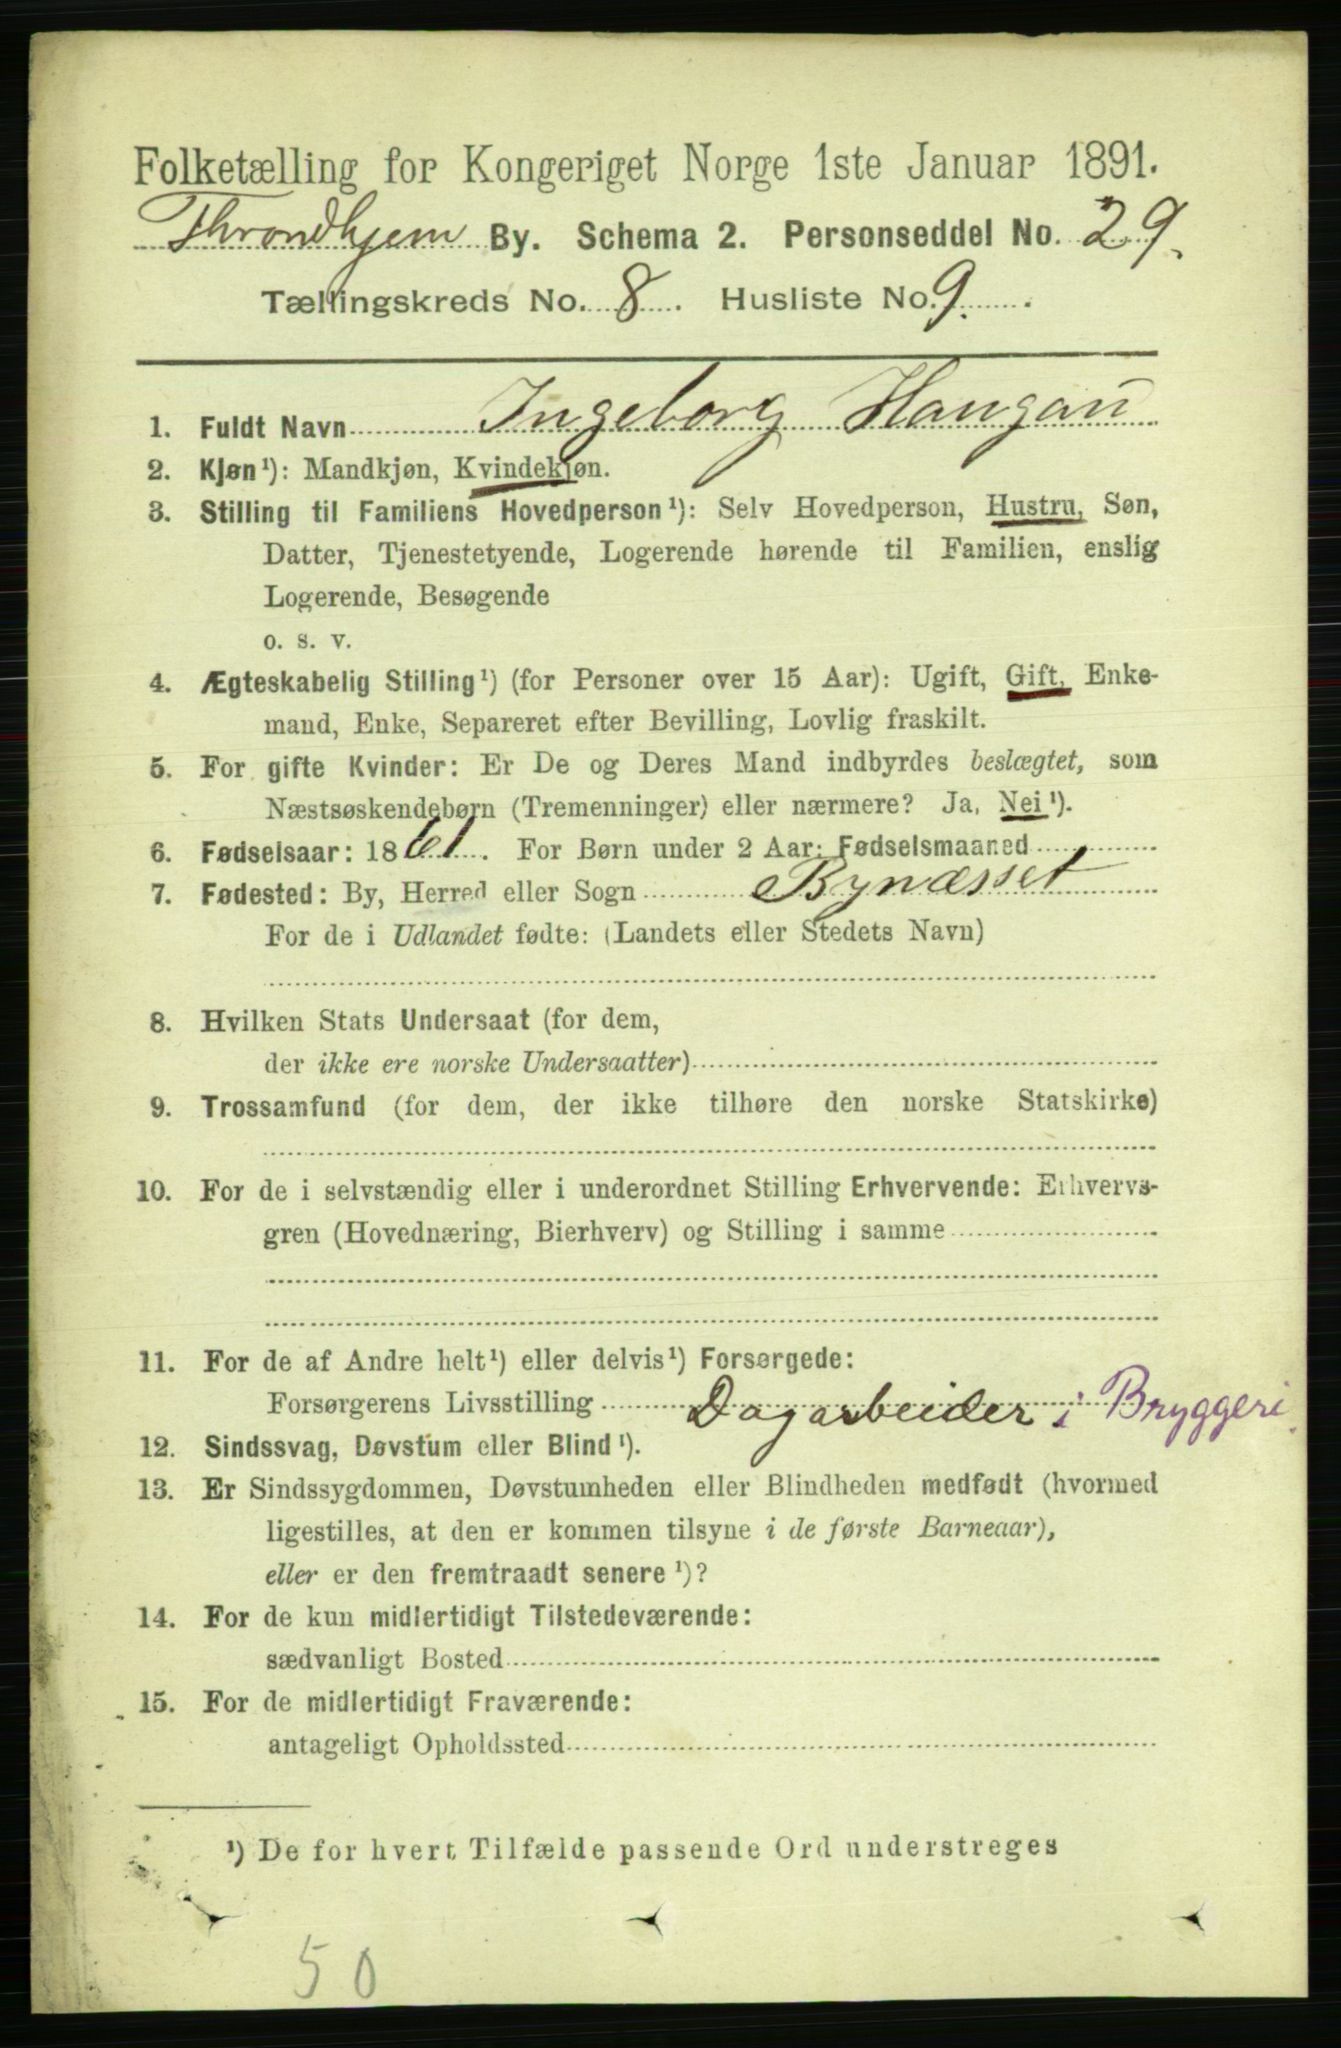 Folketælling for Kongeriget Norge 1ste Januar 1891.
Throndhjem By. Schema 2. Personseddel No. 29.
Tællingskreds No. 8. Husliste No. 9.
1. Fuldt Navn Ingeborg Haugan
2. Kjøn¹): Mandkjøn, Kvindekjøn.
3. Stilling til Familiens Hovedperson¹): Selv Hovedperson, Hustru, Søn,
Datter, Tjenestetyende, Logerende hørende til Familien, enslig
Logerende, Besøgende
o. s. v.
4. Ægteskabelig Stilling¹) (for Personer over 15 Aar): Ugift, Gift, Enke-
mand, Enke, Separeret efter Bevilling, Lovlig fraskilt.
5. For gifte Kvinder: Er De og Deres Mand indbyrdes beslægtet, som
Næstsøskendebørn (Tremenninger) eller nærmere? Ja, Nei¹).
6. Fødselsaar: 1861. For Børn under 2 Aar: Fødselsmaaned
7. Fødested: By, Herred eller Sogn Bynæsset
For de i Udlandet fødte: (Landets eller Stedets Navn)
8. Hvilken Stats Undersaat (for dem,
der ikke ere norske Undersaatter)
9. Trossamfund (for dem, der ikke tilhøre den norske Statskirke)
10. For de i selvstændig eller i underordnet Stilling Erhvervende: Erhvervs-
gren (Hovednæring, Bierhverv) og Stilling i samme
11. For de af Andre helt¹) eller delvis¹) Forsørgede:
Forsørgerens Livsstilling Dagarbeider i Bryggeri.
12. Sindssvag, Døvstum eller Blind¹).
13. Er Sindssygdommen, Døvstumheden eller Blindheden medfødt (hvormed
ligestilles, at den er kommen tilsyne i de første Barneaar),
eller er den fremtraadt senere¹)?
14. For de kun midlertidigt Tilstedeværende:
sædvanligt Bosted
15. For de midlertidigt Fraværende:
antageligt Opholdssted
¹) De for hvert Tilfælde passende Ord understreges
50